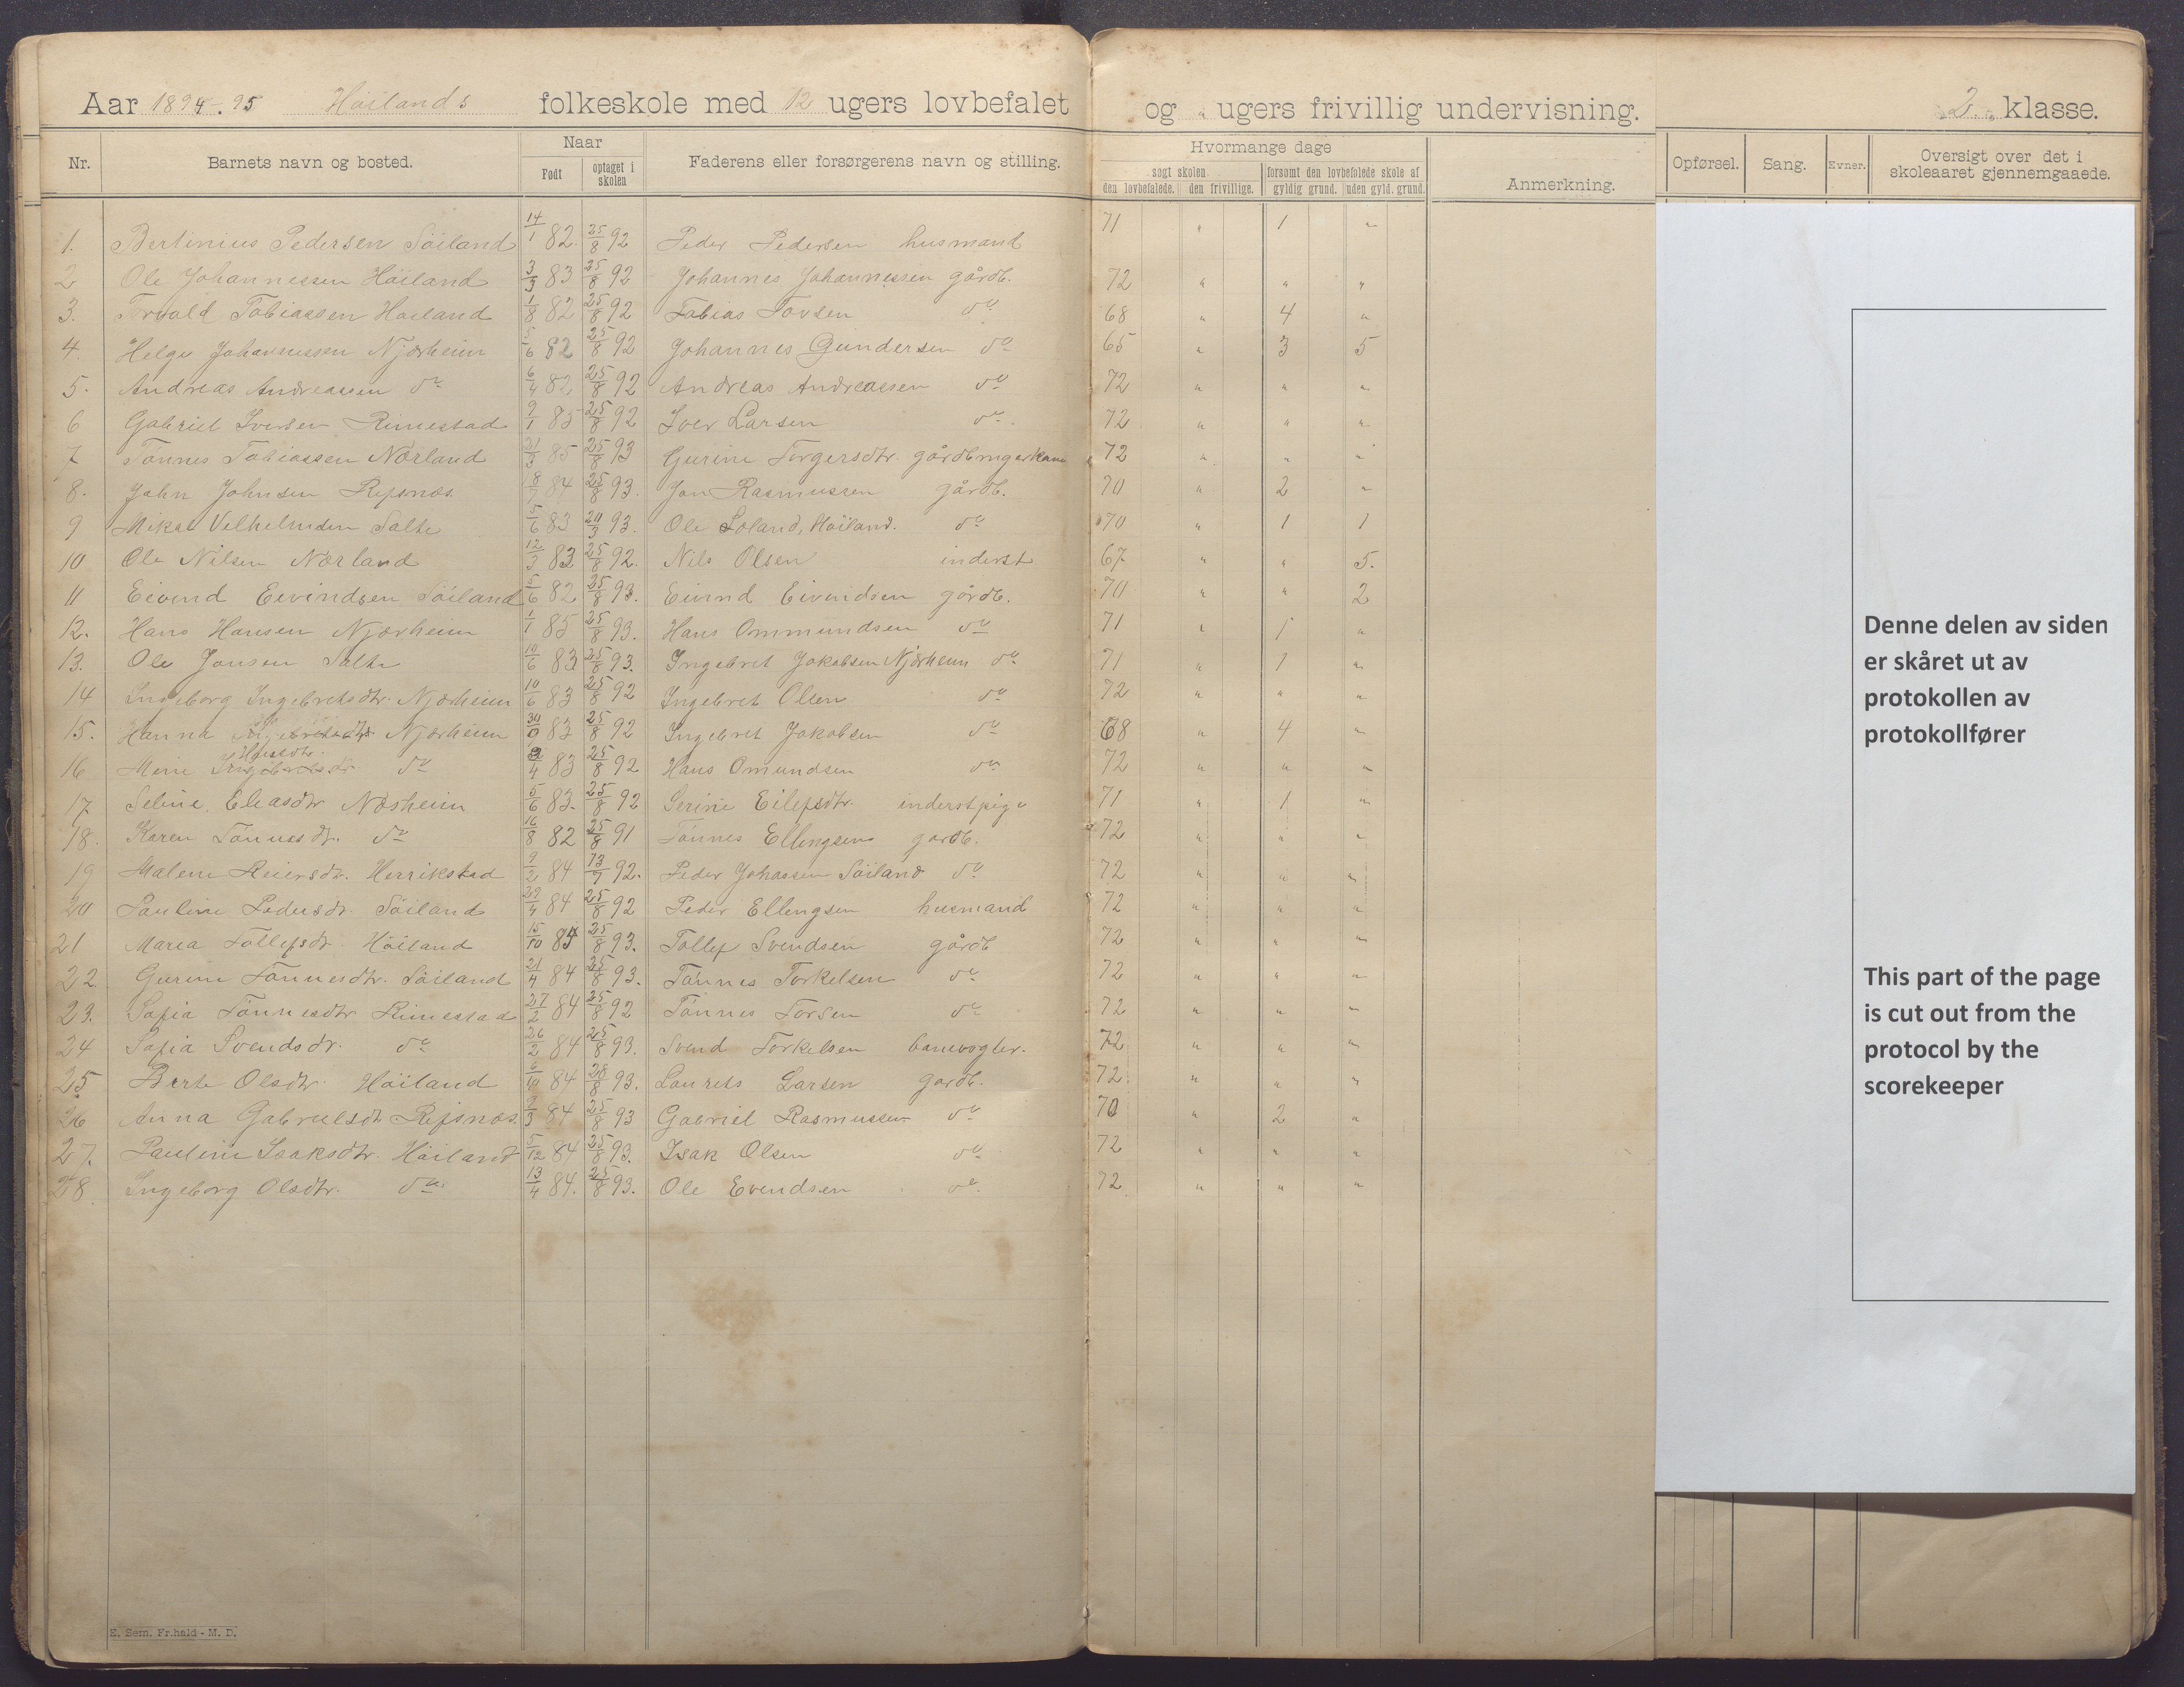 Aar 1894-95 Höilands folkeskole med 12 ugers lovbefalet og " ugers frivillig undervisning. 2. klasse.
Nr. Barnets navn og bosted. Naar Født optaget i skolen Faderens eller forsørgerens navn og stilling. Hvormange dage søgt skolen den lovbefalede. den frivillige. forsømt den lovbefalede skole af gyldig grund. uden gyld. grund. Anmerkning. Opførsel. Sang. Evner. Oversigt over det i skoleaaret gjennemgaaede.
1. Bertinius Pedersen Söiland 14/1 82. 25/8 92 Peder Pedersen husmand 71 " 1 "
2 Ole Johannessen Höiland 3/3 83 25/8 92 Johannes Johannessen gårdb. 72 " " "
3. Torvald Tobiassen Höiland 1/8 82 25/8 92 Tobias Torsen do 68 " 4 "
4. Helge Johannessen Njærheim 5/6 82 25/8 92 Johannes Gundersen do 65 " 3 5
5. Andreas Andreassen do 6/4 82 25/8 92 Andreas Andreassen do 72 " " "
6 Gabriel Iversen Rimestad 9/1 85 25/8 92 Iver Larsen do. 72 " " "
7 Tönnes Tobiassen Nærland 21/3 85 25/8 93 Gurine Torgersdtr. gårdbrugerkone 72 " " "
8. John Johnsen Refsnæs 18/7 84 25/8 93. Jon Rasmussen gårdb. 70 " 2 "
9 Mikal Velhelmsen Salte 5/6 83 20/3 93. Ole Loland, Höiland. do 70 " 1 1
10 Ole Nilsen Nærland 12/3 83 25/8 92. Nils Olsen inderst 67 " " 5.
11 Eivend Eivindsen Söiland 5/6 82 25/8 93. Eivind Eivindsen gårdb. 70 " " 2
12. Hans Hansen Njærheim 1/1 85 25/8 93. Hans Ommundsen do 71 " 1 "
13. Ole Jonsen Salte 10/6 83 25/8 93. Ingebret Jakobsen Njærheim do 71 " 1 "
14 Ingeborg Ingebretsdtr. Njærheim 10/6 83 25/8 92 Ingebret Olsen do 72 " " "
15. Hanna Ingebretsdtr Njærheim 30/9 83 25/8 92 Ingebret Jakobsen do 68 " 4 "
Hansdtr.
16 Meine Ingebretsdr. do 2/4 83 25/8 92 Hans Omundsen do 72 " " "
17. Seline Eliasdtr Næsheim 5/6 83. 25/8 92 Serine Eilefsdtr. inderstpige 71 " 1 "
18. Karen Tönnesdr. do 16/8 82 25/8 91 Tönnes Ellingsen gardb. 72 " " "
19 Malene Reiersdtr. Herrikstad 9/2 84 13/7 92. Peder Johassen Söiland do 72 " " "
20 Pauline Pedersdr. Söiland 29/4 84 25/8 92 Peder Ellengsen husmand 72 " " "
21 Marea Tollefsdr. Höiland 15/10 83 25/8 93. Tollef Svendsen gårdb 72 " " "
22 Gurine Tönnesdtr. Söiland 21/4 84 25/8 93. Tönnes Torkelsen do 72 " " "
23. Sofia Tönnesdtr Rimestad 27/2 84 25/8 92 Tönnes Torsen do 72 " " "
24 Sofia Svendsdr. do 26/2 84 25/8 93. Svend Torkelsen banevogter. 72 " " "
25 Berte Olsdtr. Höiland 6/10 84 28/8 93. Laurets Larsen gardb. 72 " " "
26 Anna Gabrielsdt Refsnæs. 9/3 84 25/8 93 Gabriel Rasmussen do 70 " 2 "
27. Pauline Isaksdtr. Höiland 5/12 84 25/8 93. Isak Olsen do 72 " " "
28. Ingeborg Olsdtr. do 13/4 84. 25/8 93. Ole Evendsen do. 72 " " "
E. Sem. Fr.hald - M. D.
Denne delen av siden
er skåret ut av
protokollen av
protokollfører
This part of the page
is cut out from the
protocol by the
scorekeeper